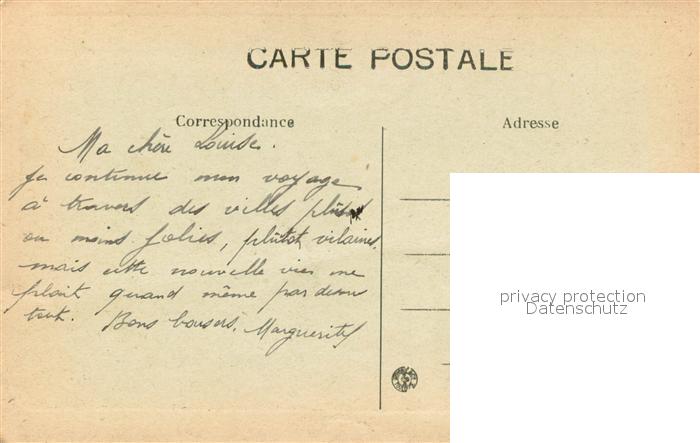 CARTE POSTALE
Correspondance
Adresse
Ma chère Louise.
je continue mon voyage
à travers des villes plus
ou moins jolies, plûtot vilaines,
mais cette nouvelle vie me
plait quand même par dessus
tout. Bons baisers. Marguerite
privacy protection
Datenschutz